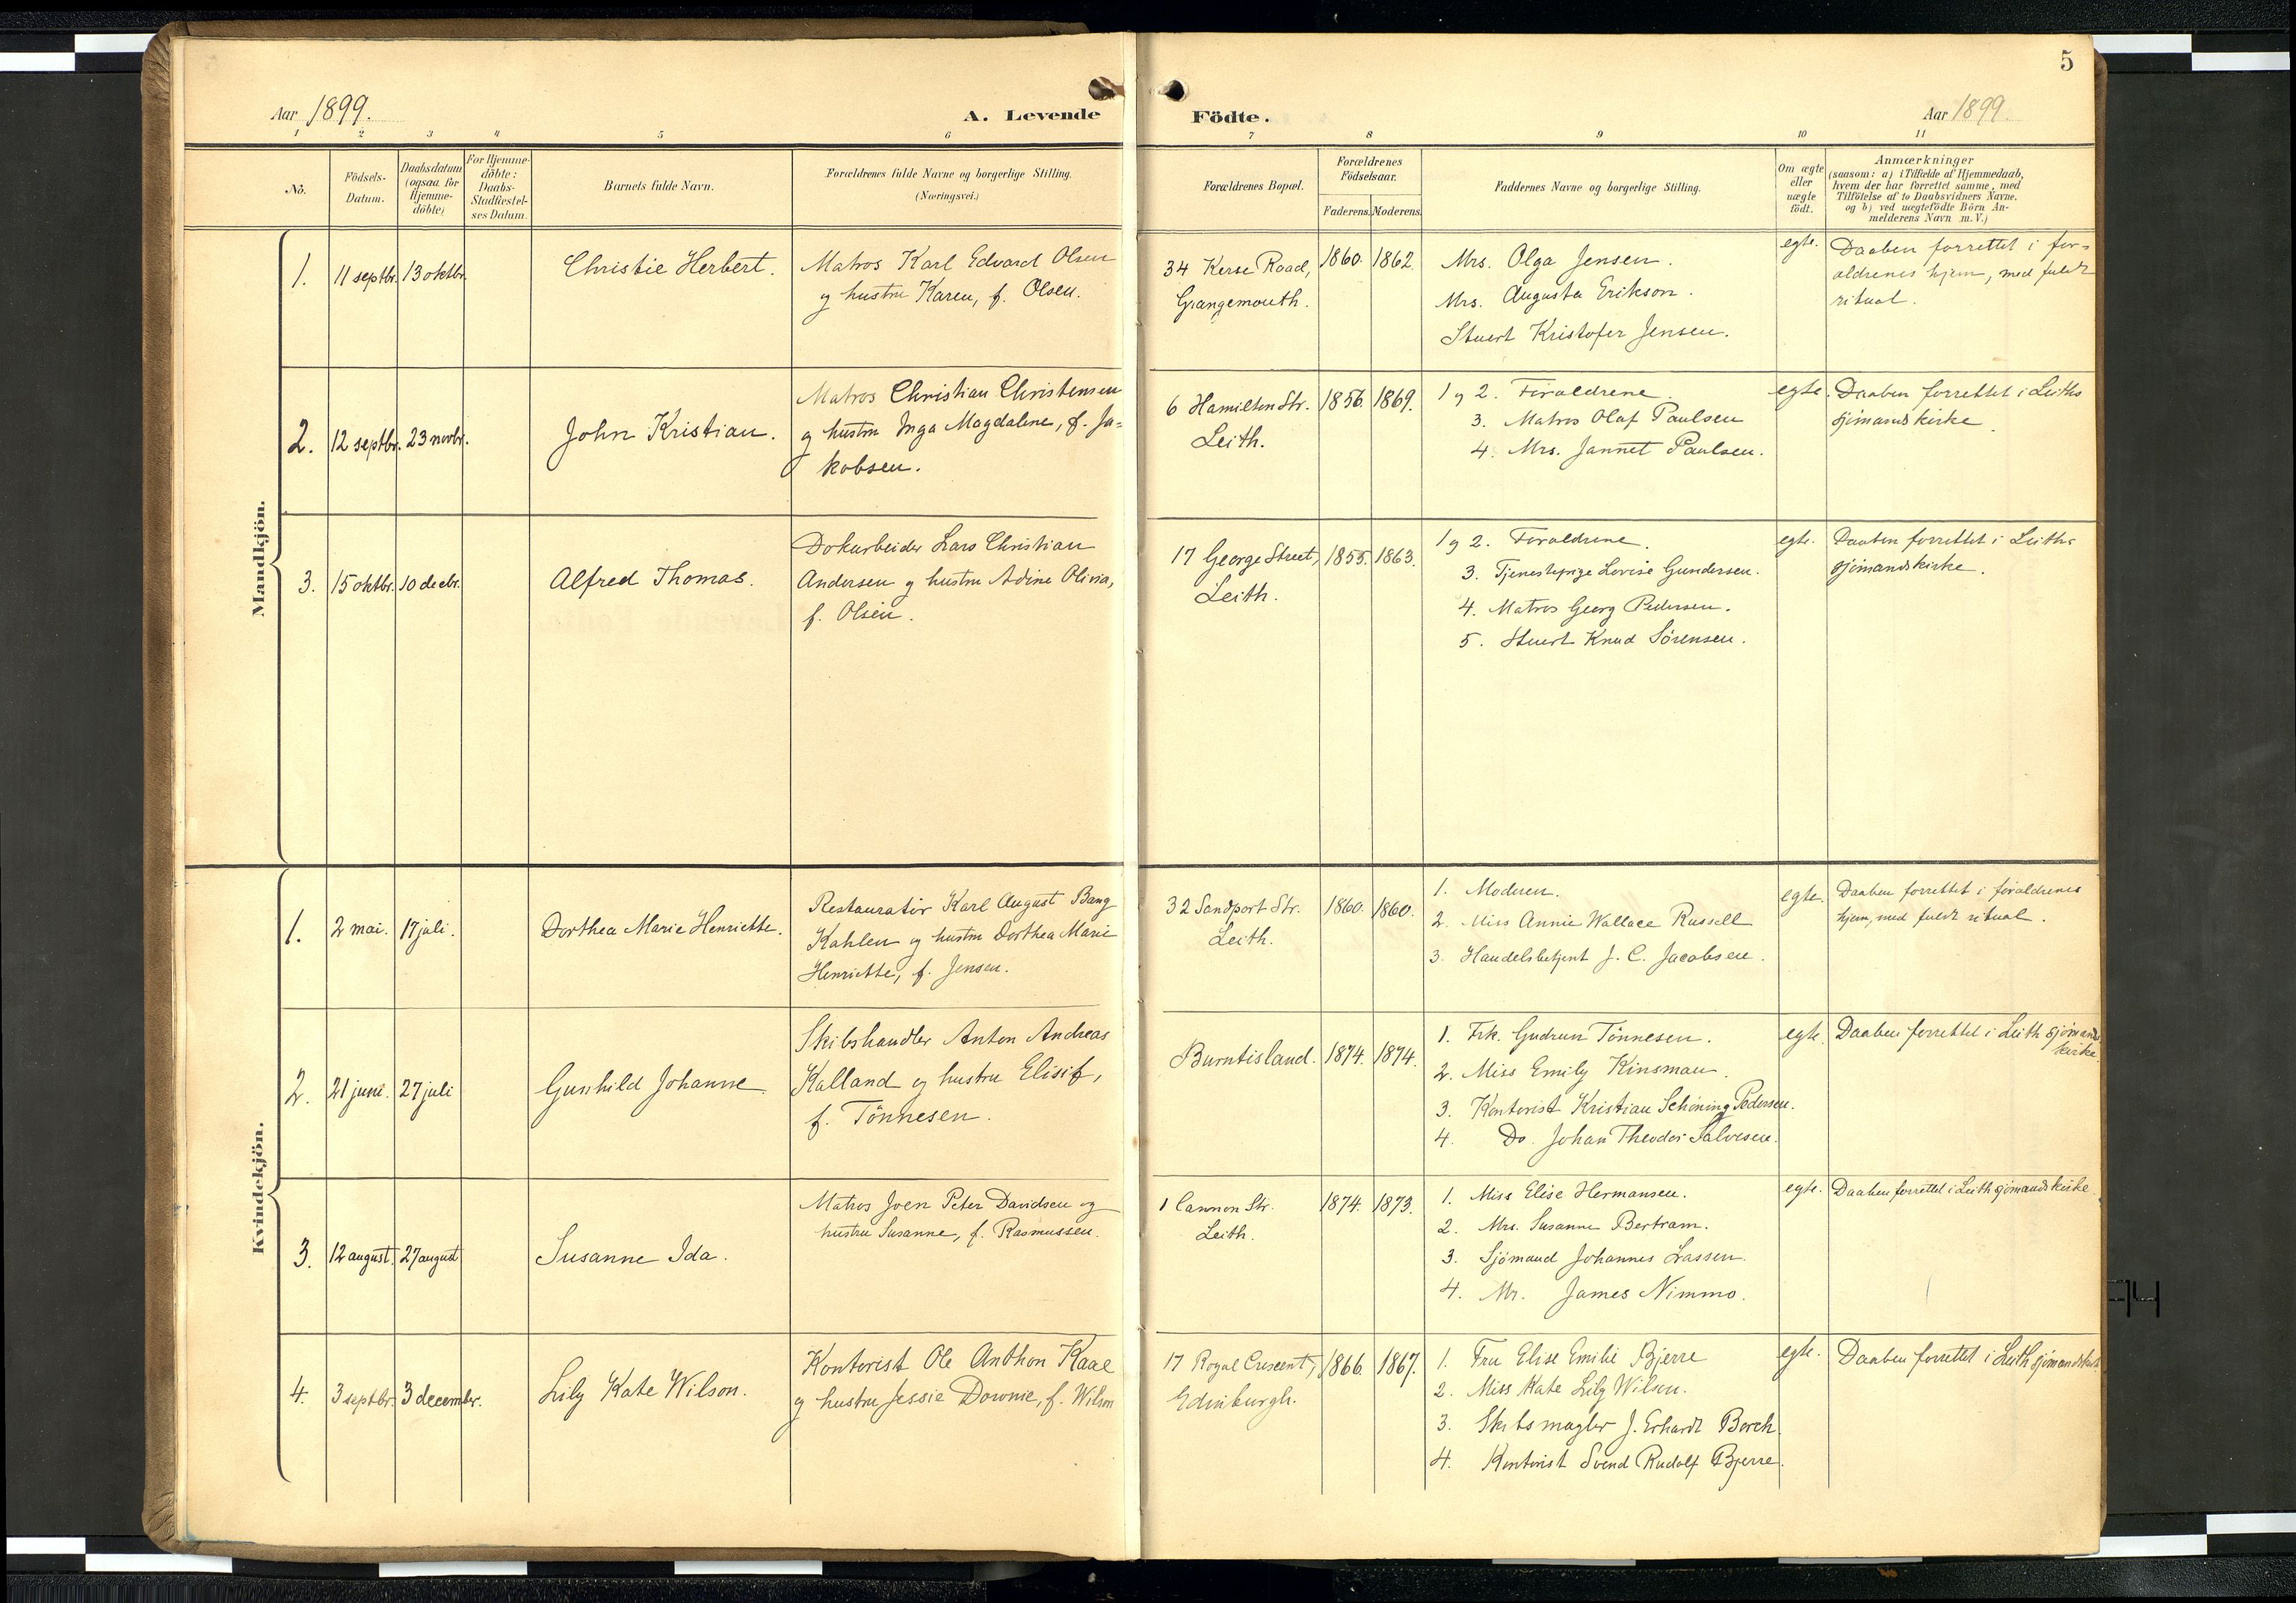 5
Aar 1899.
A. Levende
Födte.
Aar 1899
1 2 3 4 5 6 7 8 9 10 11
No.
Födsels-
Datum.
Daabsdatum
(ogsaa for
Hjemme-
döbte)
For Hjemme-
döbte:
Daabs-
Stadfæstel-
ses Datum.
Barnets fulde Navn.
Forældrenes fulde Navne og borgerlige Stilling.
(Næringsvei.)
Forældrenes Bopæl.
Forældrenes
Födselsaar.
Faderens. Moderens.
Faddernes Navne og borgerlige Stilling.
Om ægte
eller
uægte
födt.
Anmærkninger
(saasom: a) i Tilfælde af Hjemmedaab,
hvem der har forrettet samme, med
Tilföielse af to Daabsvidners Navne,
og b) ved uægtefödte Börn An-
melderens Navn m.V.)
Mandkjön.
1.
11 septbr.
13 oktbr.
Christie Herbert.
Matros Karl Edvard Olsen
og hustru Karen, f. Olsen.
34 Kerse Road,
Grangemouth.
1860.
1862.
Mrs. Olga Jensen.
Mrs. Augusta Erikson.
Stuert Kristofer Jensen.
egte.
Daaben forrettet i for-
ældrenes hjem, med fuldt
ritual.
2.
12 septbr.
23 novbr.
John Kristian.
Matros Christian Christensen
og hustru Inga Magdalene, f. Ja-
kobsen.
6 Hamilton Str.
Leith.
1856.
1869.
1 og 2. Forældrene.
3. Matros Olaf Paulsen
4. Mrs. Jannet Paulsen.
egte.
Daaben forrettet i Leiths
sjømandskirke.
3.
15 oktbr.
10 decbr.
Alfred Thomas.
Dokarbeider Lars Christian
Andersen og hustru Adine Olivia,
f. Olsen.
17 George Street,
Leith.
1855.
1863.
1 og 2. Forældrene.
3. Tjenestepige Lovise Gundersen.
4. Matros Georg Pedersen.
5. Stuert Knud Sørensen.
egte.
Daaben forrettet i Leiths
sjømandskirke.
Kvindekjön.
1.
2 mai.
17 juli.
Dorthea Marie Henriette.
Restauratør Karl August Bang
Kahlen og hustru Dorthea Marie
Henriette, f. Jensen.
32 Sandport Str.
Leith.
1860.
1860.
1. Moderen.
2. Miss Annie Wallace Russell
3. Handelsbetjent J. C. Jacobsen.
egte.
Daaben forrettet i forældrenes
hjem, med fuldt ritual.
2.
21 juni.
27 juli
Gunhild Johanne
Skibshandler Anton Andreas
Kalland og hustru Elisif,
f. Tønnesen.
Burntisland.
1874.
1874.
1. Frk. Gudrun Tønnesen.
2. Miss Emily Kinsman.
3. Kontorist Kristian Schøning Pedersen.
4. Do. Johan Theodor Salvesen.
egte.
Daaben forrettet i Leith sjømands
kirke.
3.
12 august.
27 august
Susanne Ida.
Matros Joen Peter Davidsen og
hustru Susanne, f. Rasmussen.
1 Cannon Str.
Leith.
1874.
1873.
1. Miss Elise Hermansen.
2. Mrs. Susanne Bertram.
3. Sjømand Johannes Lassen.
4. Mr. James Nimmo.
egte.
Daaben forrettet i Leith sjømandskirke.
4.
3 septbr.
3 decembr.
Lily Kate Wilson.
Kontorist Ole Anthon Kaae
og hustru Jessie Downie, f. Wilson
17 Royal Crescent,
Edinburgh.
1866.
1867.
1. Fru Elise Emilie Bjerre
2. Miss Kate Lily Wilson.
3. Skibsmægler J. Erhardt Borch
4. Kontorist Svend Rudolf Bjerre.
egte.
Daaben forrettet i Leith